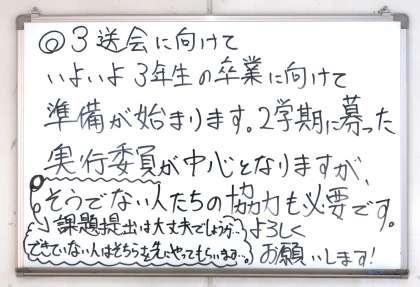 ◎3送会に向けて
いよいよ3年生の卒業に向けて
準備が始まります。2学期に募った
実行委員が中心となりますが、
そうでない人たちの協力も必要です。
よろしく
お願いします!
課題提出は大丈夫でしょうか…
できていない人はそちらを先にやってもらいます…